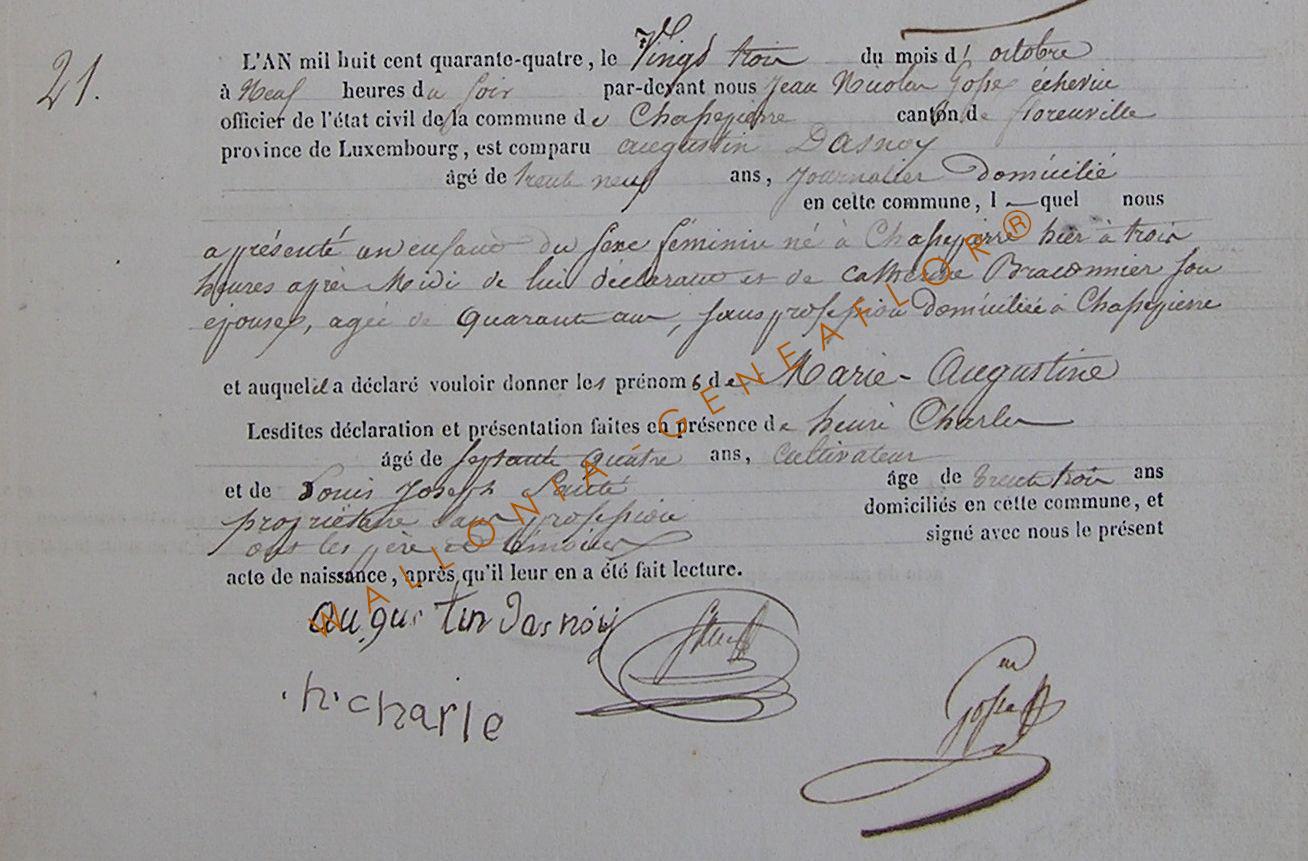 21.
L'AN mil huit cent quarante-quatre, le Vingt trois du mois d' octobre
à Neuf heures du soir par-devant nous Jean Nicolas Gofse échevin
officier de l'état civil de la commune de Chafsepierre canton de florenville
province de Luxembourg, est comparu augustin Dasnoy
âgé de trente neuf ans, Journalier Domicilié
en cette commune, l quel nous
a présenté un enfant du sexe féminin né à Chafsepierre hier à trois
heures après Midi de lui déclarant et de catherine Braconnier son
épouse, agée de Quarante ans, sans profession Domiciliée à Chafsepierre
et auquel il a déclaré vouloir donner les prénoms de Marie-Augustine
Lesdites déclaration et présentation faites en présence de henri Charles
âgé de septante Quatre ans, Cultivateur
et de Louis Joseph âge de trente trois ans
propriétaire sans profession domiciliés en cette commune, et
ont les père et témoins signé avec nous le présent
acte de naissance, après qu'il leur en a été fait lecture.
augustin Dasnoy
h. charle
Gofse
WALLONIA GENEAFLOR ®